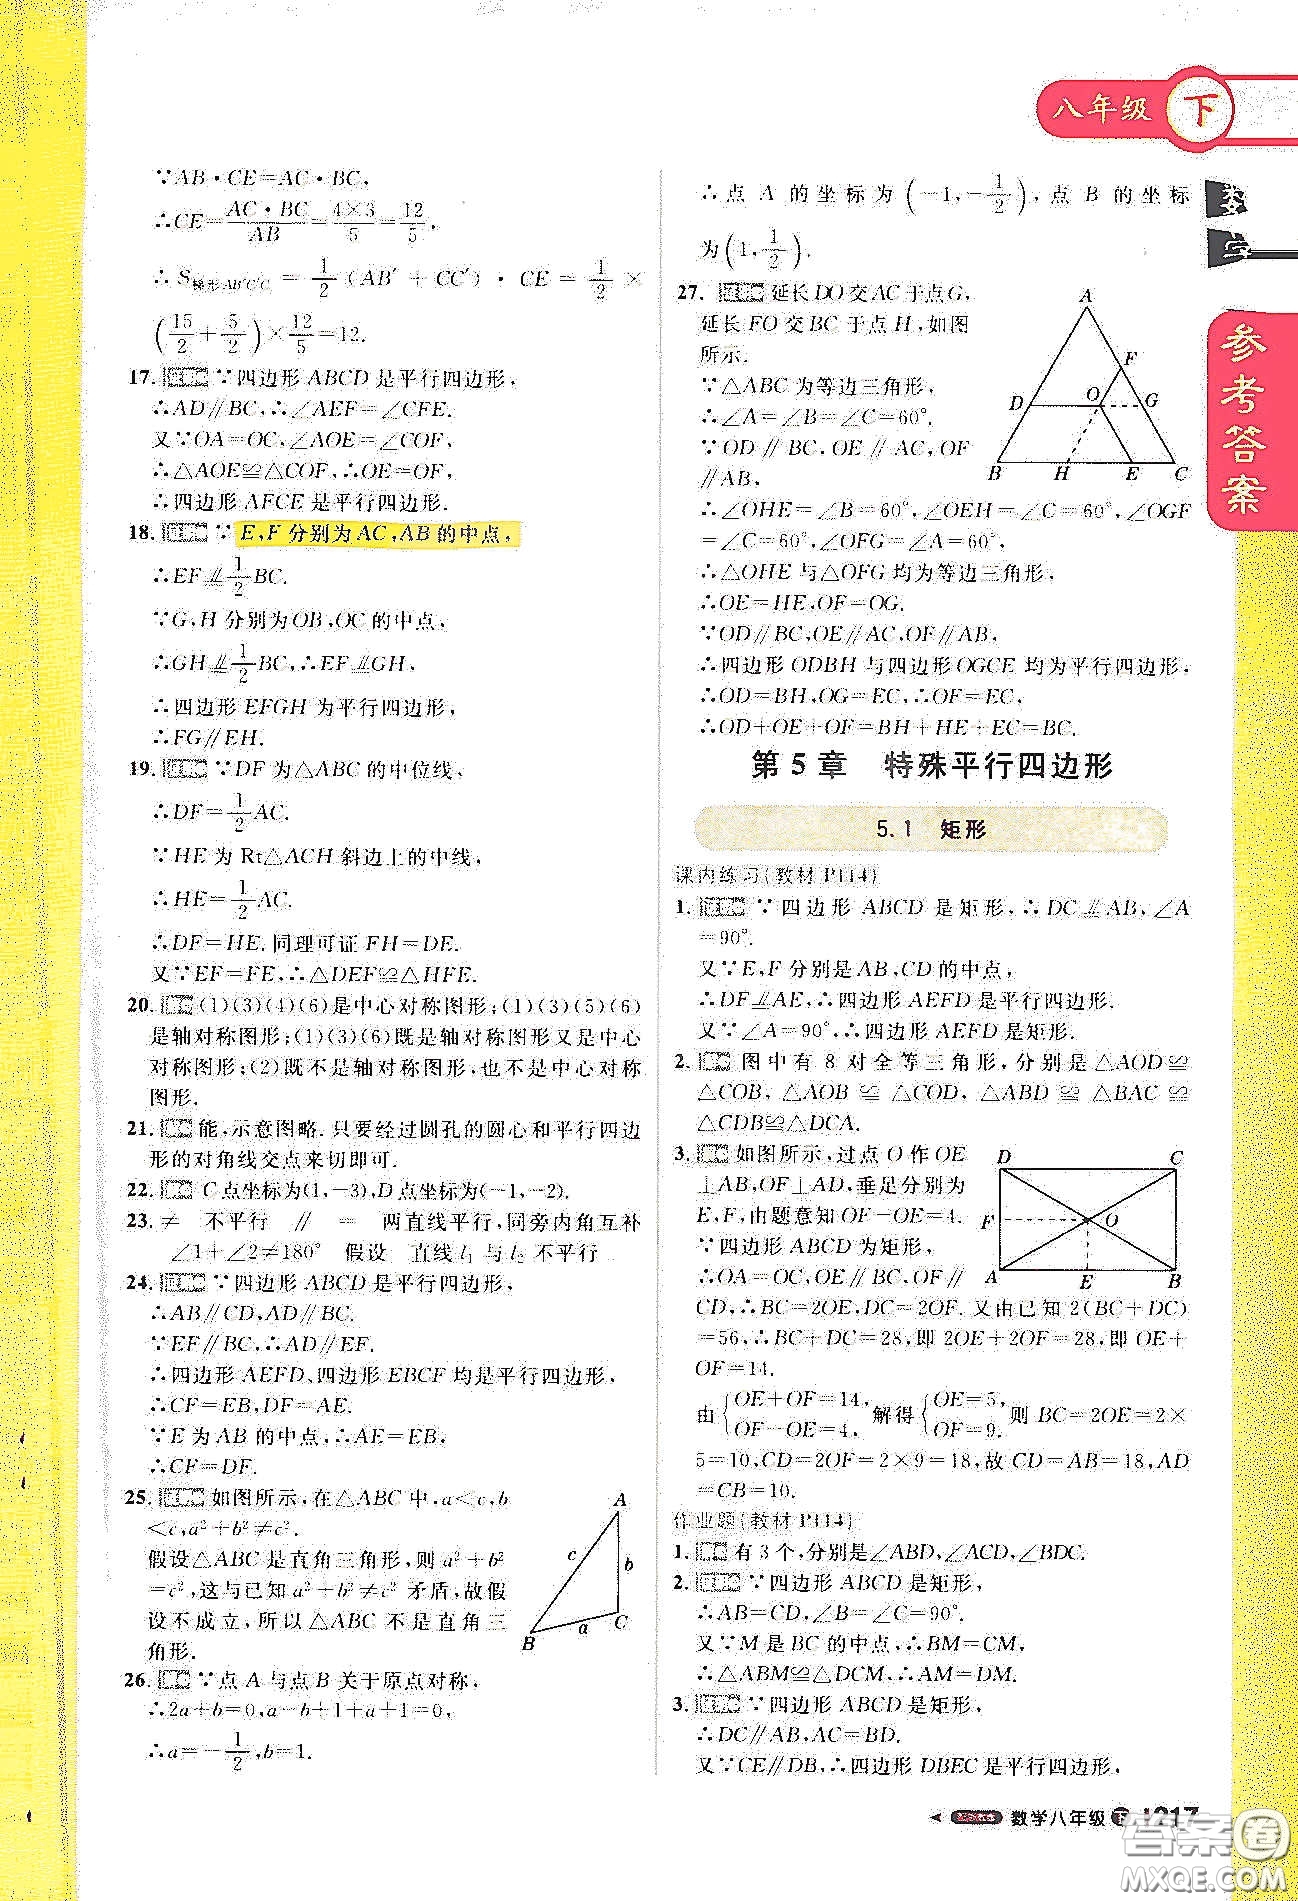 八年级 下
数学
参考答案
∵AB·CE=AC·BC,
∴CE=AC·BC/AB=4×3/5=12/5,
∴S梯形AB′C′C=1/2(AB′+CC′)·CE=1/2×
(15/2+5/2)×12/5=12.
17. ∵四边形ABCD是平行四边形,
∴AD∥BC,∴∠AEF=∠CFE.
又∵OA=OC,∠AOE=∠COF,
∴△AOE≌△COF,∴OE=OF,
∴四边形AFCE是平行四边形.
18. ∵E,F分别为AC,AB的中点,
∴EF∥=1/2BC.
∵G,H分别为OB,OC的中点,
∴GH∥=1/2BC,∴EF∥=GH,
∴四边形EFGH为平行四边形,
∴FG∥EH.
19. ∵DF为△ABC的中位线、
∴DF=1/2AC.
∵HE为Rt△ACH斜边上的中线,
∴HE=1/2AC.
∴DF=HE.同理可证FH=DE.
又∵EF=FE,∴△DEF≌△HFE.
20. (1)(3)(4)(6)是中心对称图形;(1)(3)(5)(6)
是轴对称图形;(1)(3)(6)既是轴对称图形又是中心
对称图形;(2)既不是轴对称图形,也不是中心对称
图形.
21. 能,示意图略.只要经过圆孔的圆心和平行四边
形的对角线交点来切即可.
22. C点坐标为(1,-3),D点坐标为(-1,-2).
23. ≠ 不平行 ∥ = 两直线平行,同旁内角互补
∠1+∠2≠180° 假设 直线l₁与l₂不平行
24. ∵四边形ABCD是平行四边形,
∴AB∥CD,AD∥BC.
∵EF∥BC,∴AD∥EF.
∴四边形AEFD、四边形EBCF均是平行四边形,
∴CF=EB,DF=AE.
∵E为AB的中点,∴AE=EB,
∴CF=DF.
25. 如图所示,在△ABC中,a<c,b
<c,a²+b²≠c².
假设△ABC是直角三角形,则a²+b²
=c²,这与已知a²+b²≠c²矛盾,故假
设不成立,所以△ABC不是直角三
角形.
A
c
b
B
a
C
26. ∵点A与点B关于原点对称,
∴2a+b=0,a-b+1+a+1=0,
∴a=-1/2,b=1.
∴点A的坐标为(-1,-1/2),点B的坐标
为(1,1/2).
27. 延长DO交AC于点G,
延长FO交BC于点H,如图
所示.
∵△ABC为等边三角形,
∴∠A=∠B=∠C=60°.
∵OD∥BC,OE∥AC,OF
∥AB,
∴∠OHE=∠B=60°,∠OEH=∠C=60°,∠OGF
=∠C=60°,∠OFG=∠A=60°,
∴△OHE与△OFG均为等边三角形,
∴OE=HE,OF=OG.
∵OD∥BC,OE∥AC,OF∥AB,
∴四边形ODBH与四边形OGCE均为平行四边形,
∴OD=BH,OG=EC,∴OF=EC,
∴OD+OE+OF=BH+HE+EC=BC.
A
F
D
O
G
B
H
E
C
第5章 特殊平行四边形
5.1 矩形
课内练习(教材P114)
1. ∵四边形ABCD是矩形,∴DC∥=AB,∠A
=90°.
又∵E,F分别是AB,CD的中点,
∴DF∥=AE,∴四边形AEFD是平行四边形.
又∵∠A=90°,∴四边形AEFD是矩形.
2. 图中有8对全等三角形,分别是△AOD≌
△COB,△AOB≌△COD,△ABD≌△BAC
≌△CDB≌△DCA.
3. 如图所示,过点O作OE
⊥AB,OF⊥AD,垂足分别为
E,F,由题意知OF-OE=4.
∵四边形ABCD为矩形,
∴OA=OC,OE∥BC,OF∥
CD,∴BC=2OE,DC=2OF.又由已知2(BC+DC)
=56,∴BC+DC=28,即2OE+2OF=28,即OE+
OF=14.
由{OE+OF=14, OF-OE=4, 解得{OE=5, OF=9. 则BC=2OE=2×
5=10,CD=2OF=2×9=18,故CD=AB=18,AD
=CB=10.
D
C
F
O
A
E
B
作业题(教材P114)
1. 有3个,分别是∠ABD,∠ACD,∠BDC.
2. ∵四边形ABCD是矩形,
∴AB=CD,∠B=∠C=90°.
又∵M是BC的中点,∴BM=CM,
∴△ABM≌△DCM,∴AM=DM.
3. ∵四边形ABCD是矩形,
∴DC∥AB,AC=BD.
又∵CE∥DB,∴四边形DBEC是平行四边形,
数学八年级 下 217
答案卷
MXQE.COM